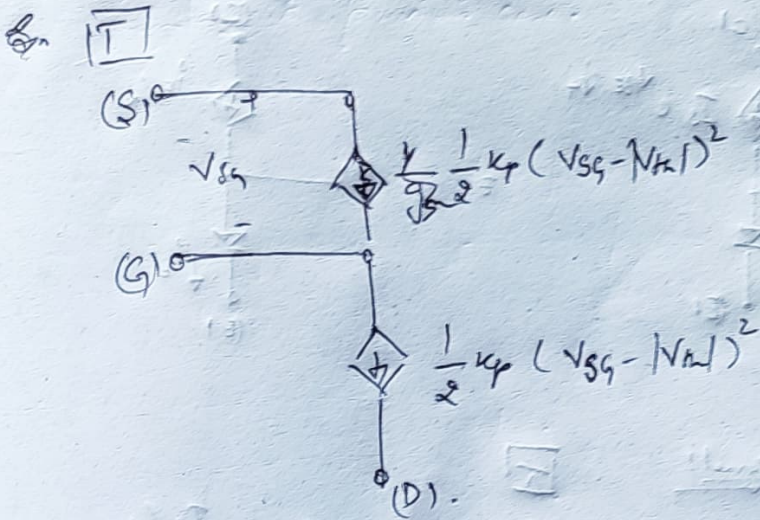 T
(S)
+
V_SG
½ K_p ( V_SG - |V_tn| )²
-
(G)
½ K_p ( V_SG - |V_tn| )²
(D).